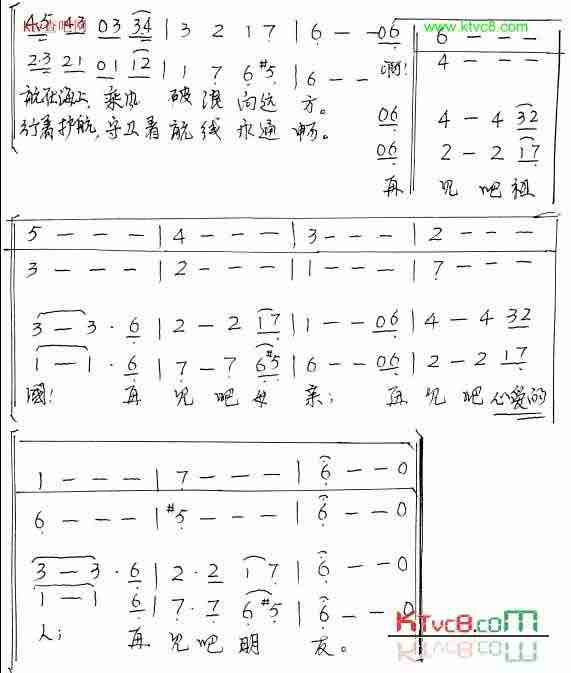 www.ktvc8.com
4·5 4 3 0 3 3 4 | 3 2 1 7 | 6 - - 0 6 | 6 - - -
2·3 2 1 0 1 1 2 | 1 1 7 6 #5 | 6 - - 啊! 4 - - -
航在海上, 乘风 破浪向远方。 0 6 4 - 4 3 2
行着护航, 守卫着航线永通畅。 0 6 2 - 2 1 7
再 见吧祖
5 - - - | 4 - - - | 3 - - - | 2 - - -
3 - - - | 2 - - - | 1 - - - | 7 - - -
3 - 3 · 6 | 2 - 2 1 7 | 1 - - 0 6 | 4 - 4 3 2
1 - 1 · 6 | 7 - 7 6 #5 | 6 - - 0 6 | 2 - 2 1 7
國! 再 见吧母 亲; 再 见吧心爱的
1 - - - | 7 - - - | 6 - - 0
6 - - - | #5 - - - | 6 - - 0
3 - 3 · 6 | 2 · 2 1 7 | 6 - - 0
1 - 1 6 | 7 · 7 6 #5 | 6 - - 0
人; 再 见吧朋 友。
KTvc8.com